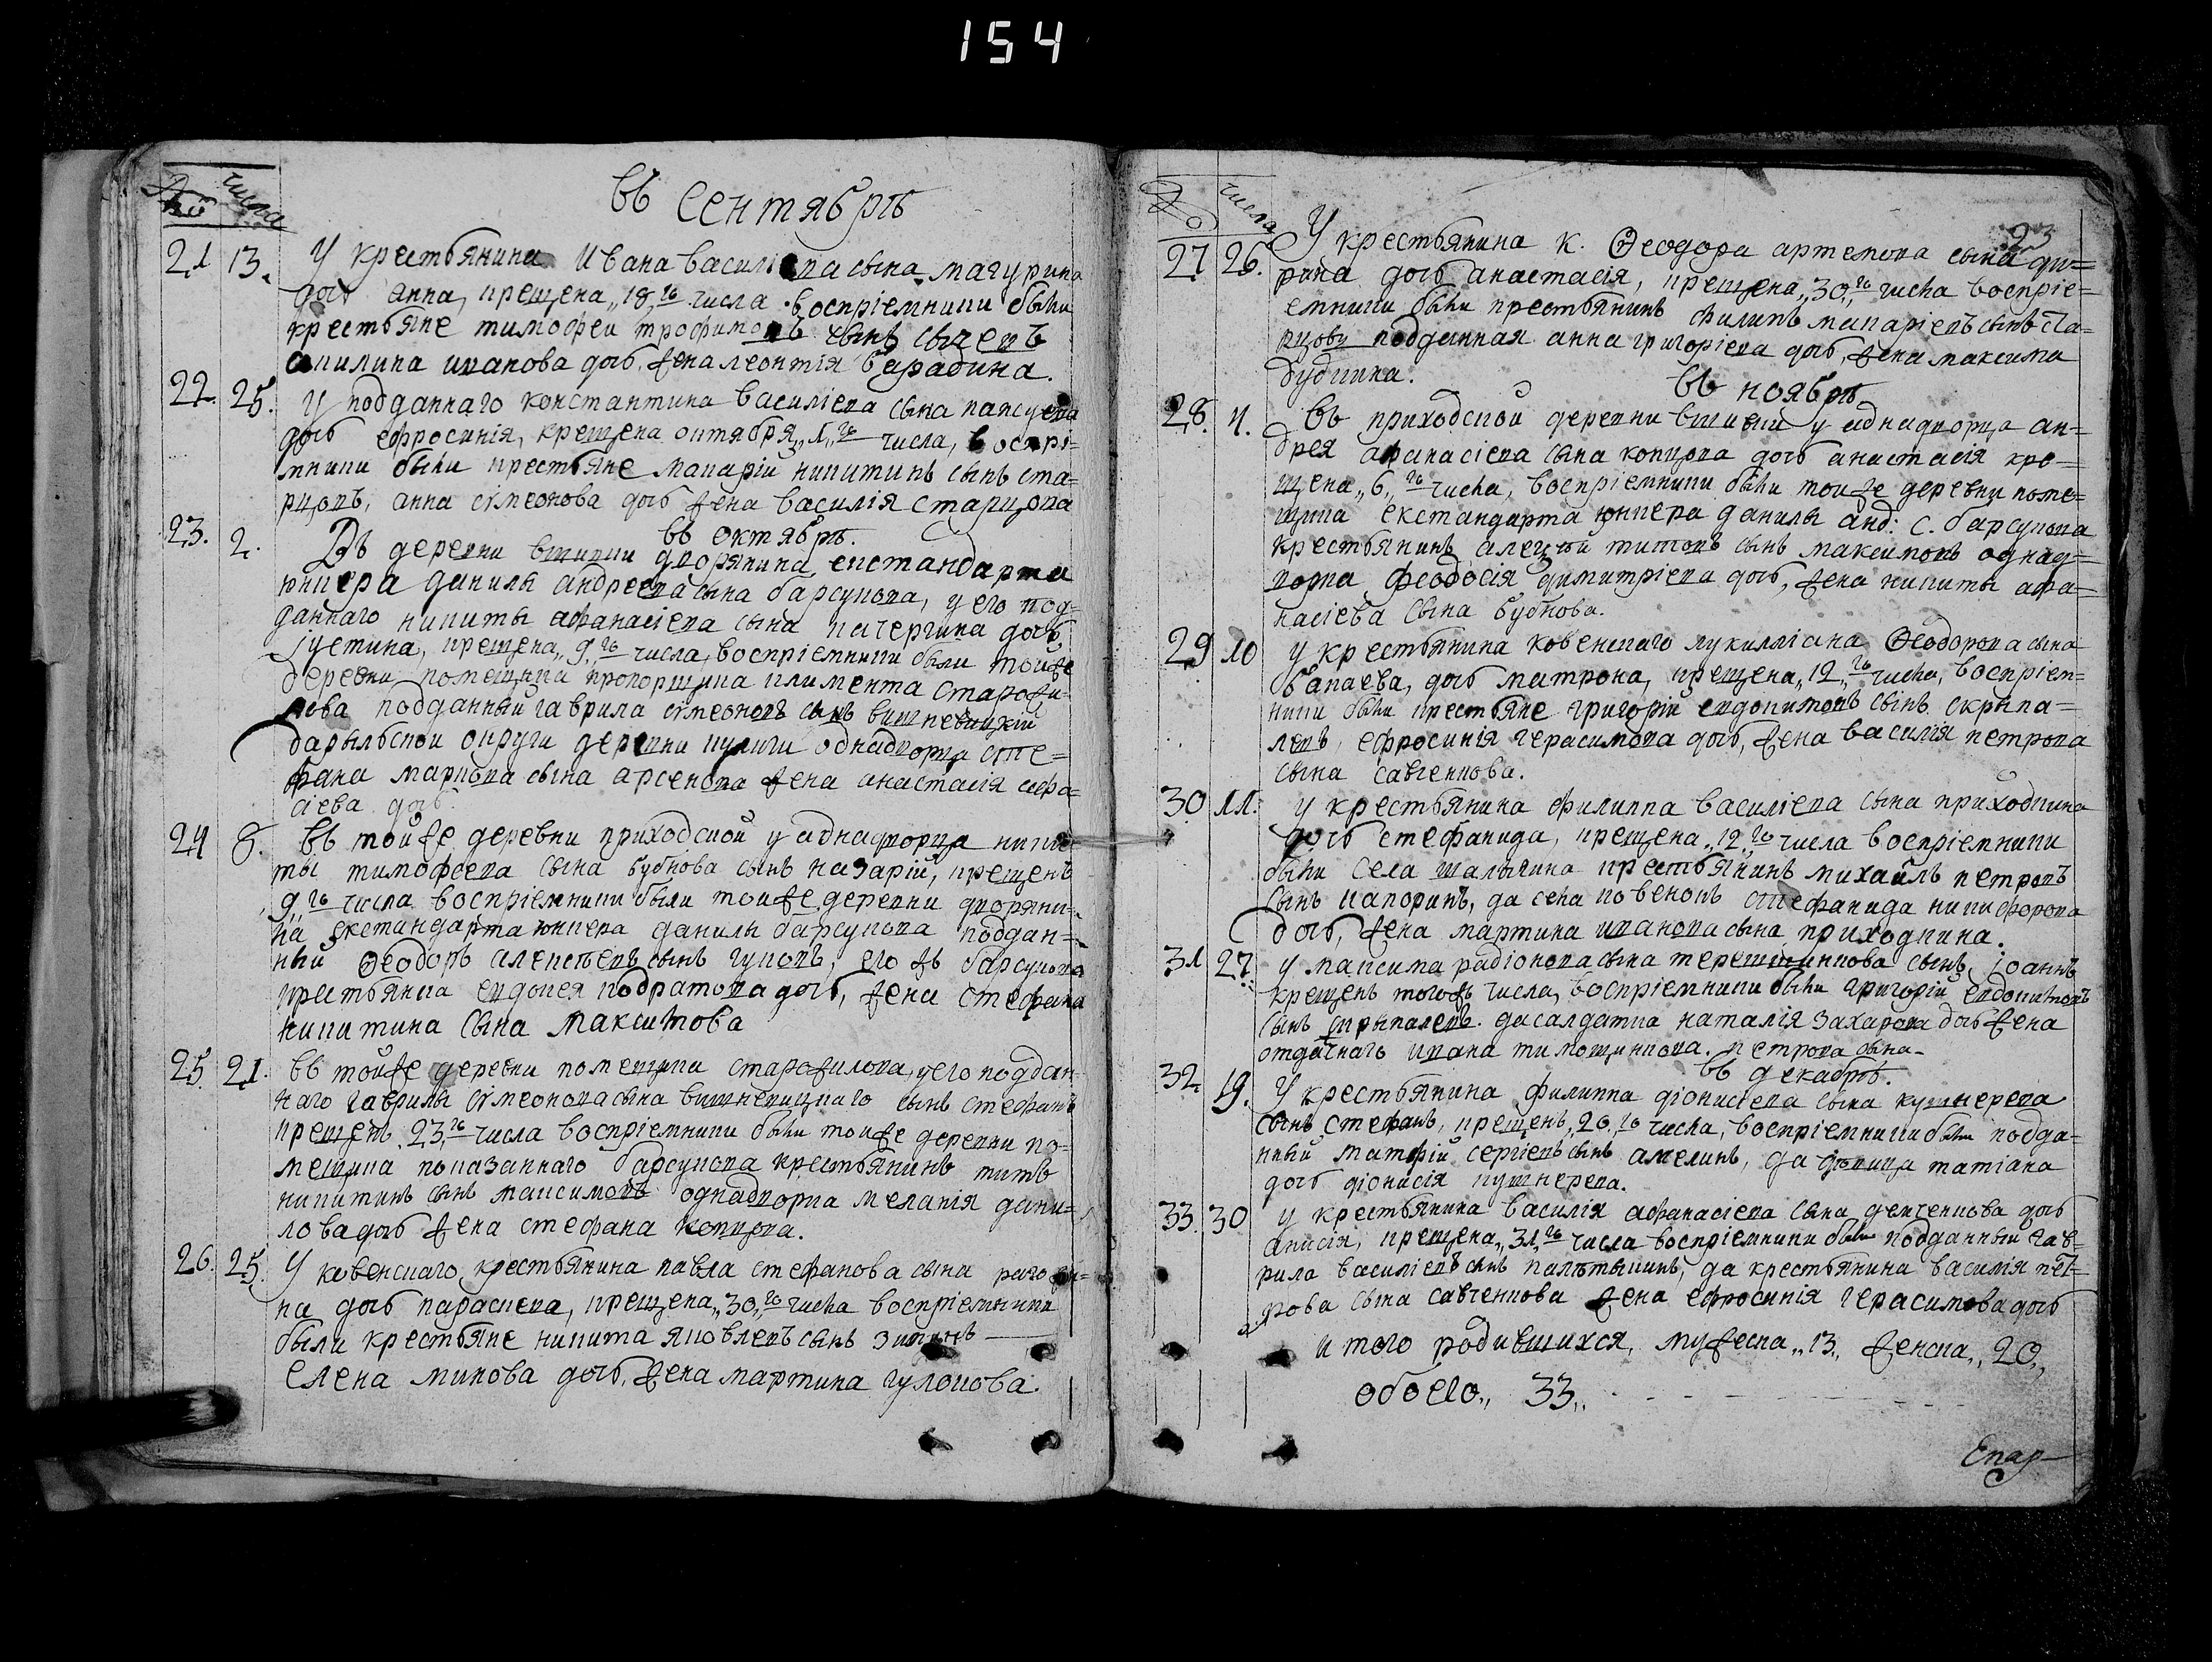 154
№ числа
Въ Сентябрѣ
21 13. У крестьянина Ивана Василіева сына Магурина
дочь анна, крещена „18„го числа воспріемники были
крестьяне тимофеи трофимовъ сынъ сычевъ
акилина иванова дочь, жена леонтія барабина.
22. 25. У подданнаго константина Василіева сына
дочь ефросинія, крещена октября „1„го числа, воспрі-
мники были крестьяне макарій никитинъ сынъ ста-
рцовъ, анна сѵмеонова дочь жена василія старцова
въ октябрѣ.
23. 2. Въ деревни дворянина екстандарта
юнкера данилы андреева сына барсукова, у его под-
даннаго никиты афанасіева сына дочь
іустина, крещена „9„го числа, воспріемники были тойже
деревни помещика прапорщика климента старожи-
лова подданный гаврила сѵмеоновъ сынъ вишневицкій
округи деревни однадворца сте-
фана маркова сына арсенова жена анастасія афа-
сіева дочь.
24 8. Въ тойже деревни приходской у аднадворца ники-
ты тимофеева сына бубнова сынъ назарій, крещенъ
9„го числа воспріемники были тойже деревни дворяни-
на екстандарта юнкера данилы барсукова поддан-
ный Ѳеодоръ алексѣевъ сынъ гуковъ, его жъ барсукова
крестьянка евдокея кодратова дочь, жена стефана
никитина сына Максимова
25. 21. Въ тойже деревни помещика старожилова, у его поддан
наго гаврилы сѵмеонова сына вишневицкаго сынъ стефанъ
крещенъ 23„го числа воспріемники были тойже деревни по-
мещика показаннаго барсукова крестьянинъ титъ
никитинъ сынъ максимовъ однадворка меланія дани-
лова дочь жена стефана копцова.
26. 25. У ковенскаго крестьянина павла стефанова сына
на дочь параскева, крещена „30„го числа воспріемники
были крестьяне никита яковлевъ сынъ
елена микова дочь, жена мартина гулокова.
№ числа
23
27 26. У крестьянина к. Ѳеодора артемова сына ди-
рина дочь анастасія, крещена „30„го числа воспріе-
емники были крестьянинъ филипъ макаріевъ сынъ ста-
рцовъ подданная анна григоріева дочь, жена максима
будника.
Въ ноябрѣ
28. 4. Въ приходской деревни у аднадворца ан-
дрея афанасіева сына копцова дочь анастасія кре-
щена „6„го числа, воспріемники были тойже деревни поме-
щика екстандарта юнкера данилы анд: с. барсукова
крестьянинъ алецъй титовъ сынъ максимовъ однад-
ворка феодосія димитріева дочь, жена никиты афа-
насіева сына бубнова.
29 10 У крестьянина ковенскаго лукилліана Ѳеодорова сына
бапаева, дочь матрона, крещена „12„го числа, воспріем-
ники были крестьяне григорій евдокимовъ сынъ скрыпа-
левъ, ефросинія герасимова дочь, жена василія петрова
сына савченкова.
30 11. У крестьянина филиппа василіева сына приходкина
дочь стефанида, крещена „12„го числа воспріемники
были села шалыгина крестьянинъ михаилъ петровъ
сынъ капоринъ, да села ковенокъ стефанида никифорова
дочь, жена мартина иванова сына приходкина.
31 27 У максима радіонова сына терешинкова сынъ іоаннъ
крещенъ тогожъ числа, воспріемники были григорій евдокимовъ
сынъ скрыпалевъ. да салдатка наталія захарова дочь жена
отдачнаго ивана тимошинкова. петрова сына.
въ декабрѣ.
32 19. У крестьянина филиппа діонисіева сына кушнерева
сынъ стефанъ, крещенъ „20„го числа, воспріемники были подда-
нный матфій сергіевъ сынъ амелинъ, да девица татіана
дочь діонисія кушнерева.
33. 30 У крестьянина василія афанасіева сына демченкова дочь
анисія, крещена „31„го числа воспріемники были подданный гав-
рила василіевъ сынъ палѣтыкинъ, да крестьянина василія пет-
рова сына савченкова жена ефросинія герасимова дочь
итого родившихся, мужеска „13„ женска „20„
обоего „ 33 „
Епар-